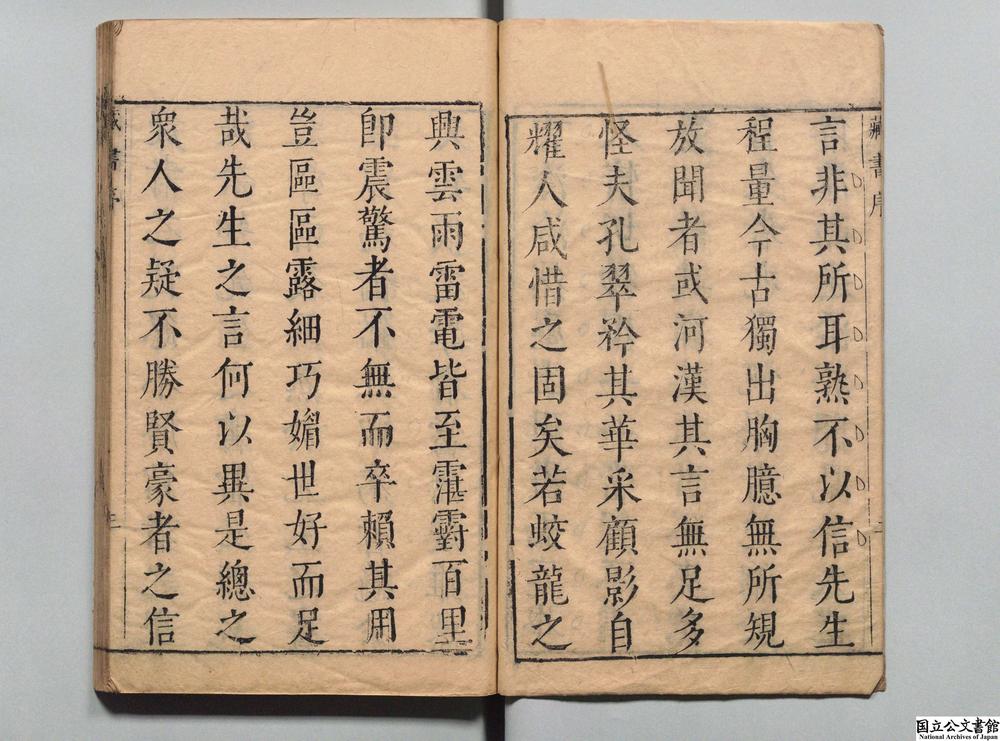 藏書序
言非其所耳熟不以信先生
程量今古獨出胸臆無所規
放聞者或河漢其言無足多
怪夫孔翠矜其華采顧影自
耀人咸惜之固矣若蛟龍之
興雲雨雷電皆至霮䨴百里
卽震驚者不無而卒賴其用
豈區區露細巧媚世好而足
哉先生之言何以異是總之
衆人之疑不勝賢豪者之信
藏書序
三
国立公文書館
National Archives of Japan